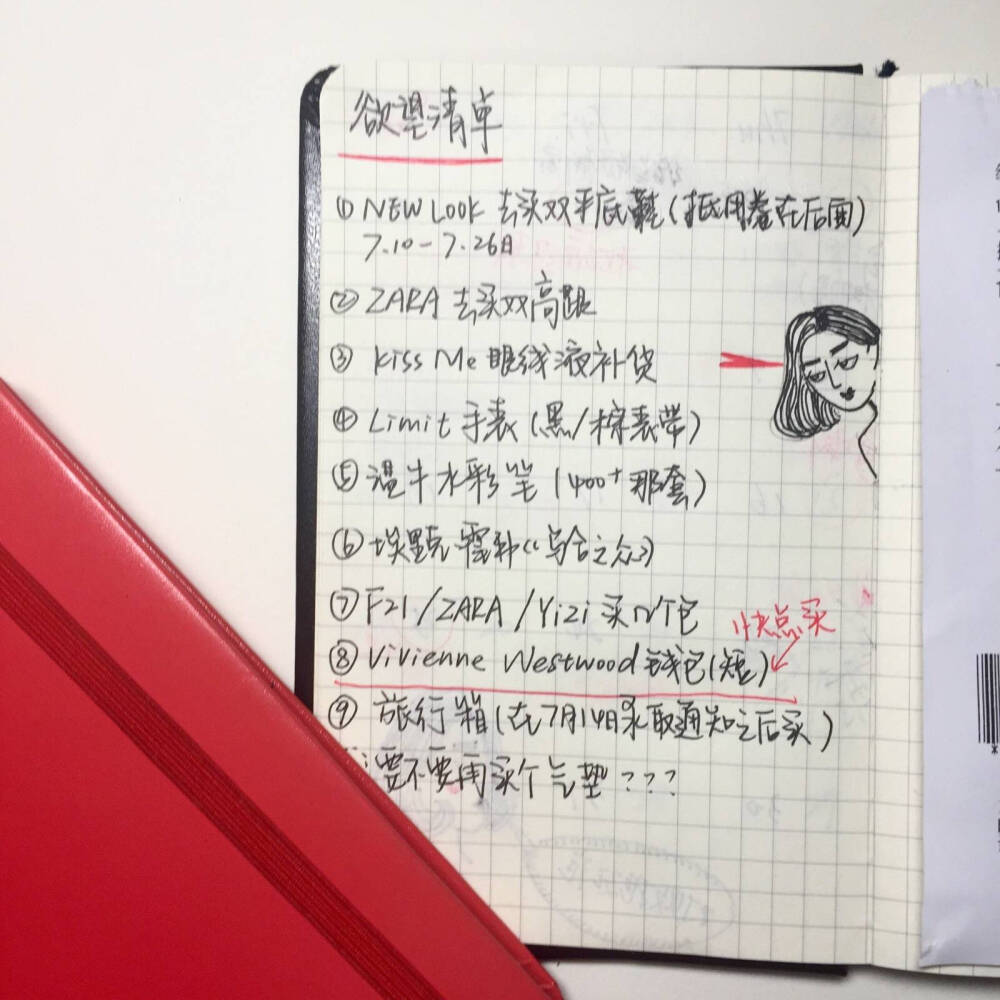 欲望清单
① NEW LOOK 去买双平底鞋(抵用卷在后面)
7.10－7.26日
② ZARA 去买双高跟
③ Kiss Me 眼线液补货
④ Limit 手表(黑/棕表带)
⑤ 温牛水彩笔(1400+那套)
⑥ 埃里克霍弗《乌合之众》
⑦ F21/ZARA/Yizi 买个包
快点买
⑧ Vivienne Westwood 钱包(短)
⑨ 旅行箱(在7月14日录取通知之后买)
要不要再买个气垫???